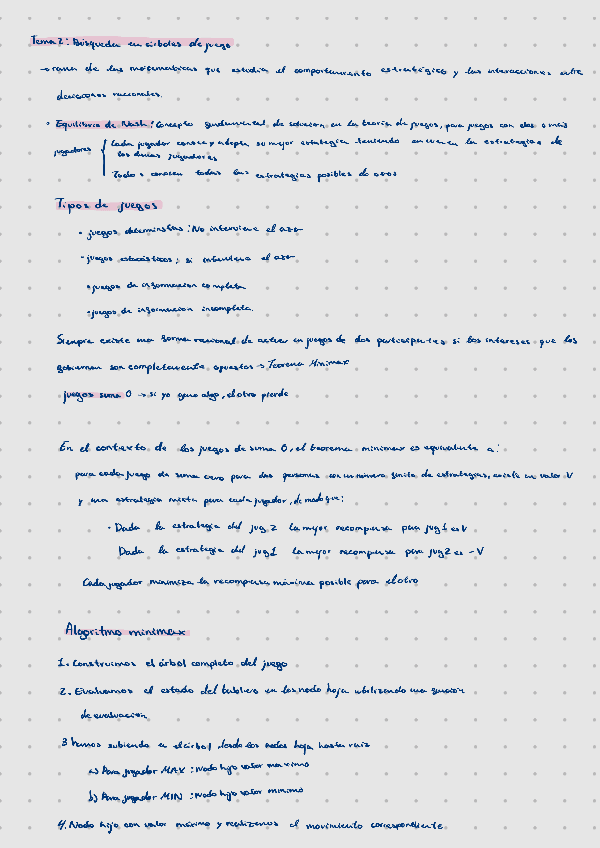 Tema 2: Búsqueda en árboles de juego
→ rama de las matematicas que estudia el comportamiento estratégico y las interacciones entre
decisiones racionales.
• Equilibrio de Nash: Concepto fundamental de solucion en la teoria de juegos, para juegos con dos o más
jugadores
Cada jugador conoce y adopta su mejor estrategia teniendo en cuenta la estrategia de
los demas jugadores
Todos conocen todas las estrategias posibles de otros
Tipos de juegos
• juegos deterministas: No interviene el azar
• juegos estocásticos: si interviene el azar
• juegos de informacion completa
• juegos de informacion incompleta.
Siempre existe una forma racional de actuar en juegos de dos participantes si los intereses que los
gobiernan son completamente opuestos → Teorema Minimax
juegos suma 0 → si yo gano algo, el otro pierde
En el contexto de los juegos de suma 0, el teorema minimax es equivalente a:
para cada juego de suma cero para dos personas con un número finito de estrategias, existe un valor V
y una estrategia mixta para cada jugador, de modo que:
• Dada la estrategia del jug 2 la mejor recompensa para jug 1 es V
Dada la estrategia del jug 1 la mejor recompensa para jug 2 es -V
Cada jugador minimiza la recompensa máxima posible para el otro
Algoritmo minimax
1. Construimos el árbol completo del juego
2. Evaluamos el estado del tablero en los nodo hoja utilizando una funcion
de evaluación
3 Vamos subiendo en el arbol desde los nodos hoja hasta raiz
a) Para jugador MAX: Nodo hijo valor maximo
b) Para jugador MIN: Nodo hijo valor minimo
4. Nodo hijo con valor máximo y realizamos el movimiento correspondiente